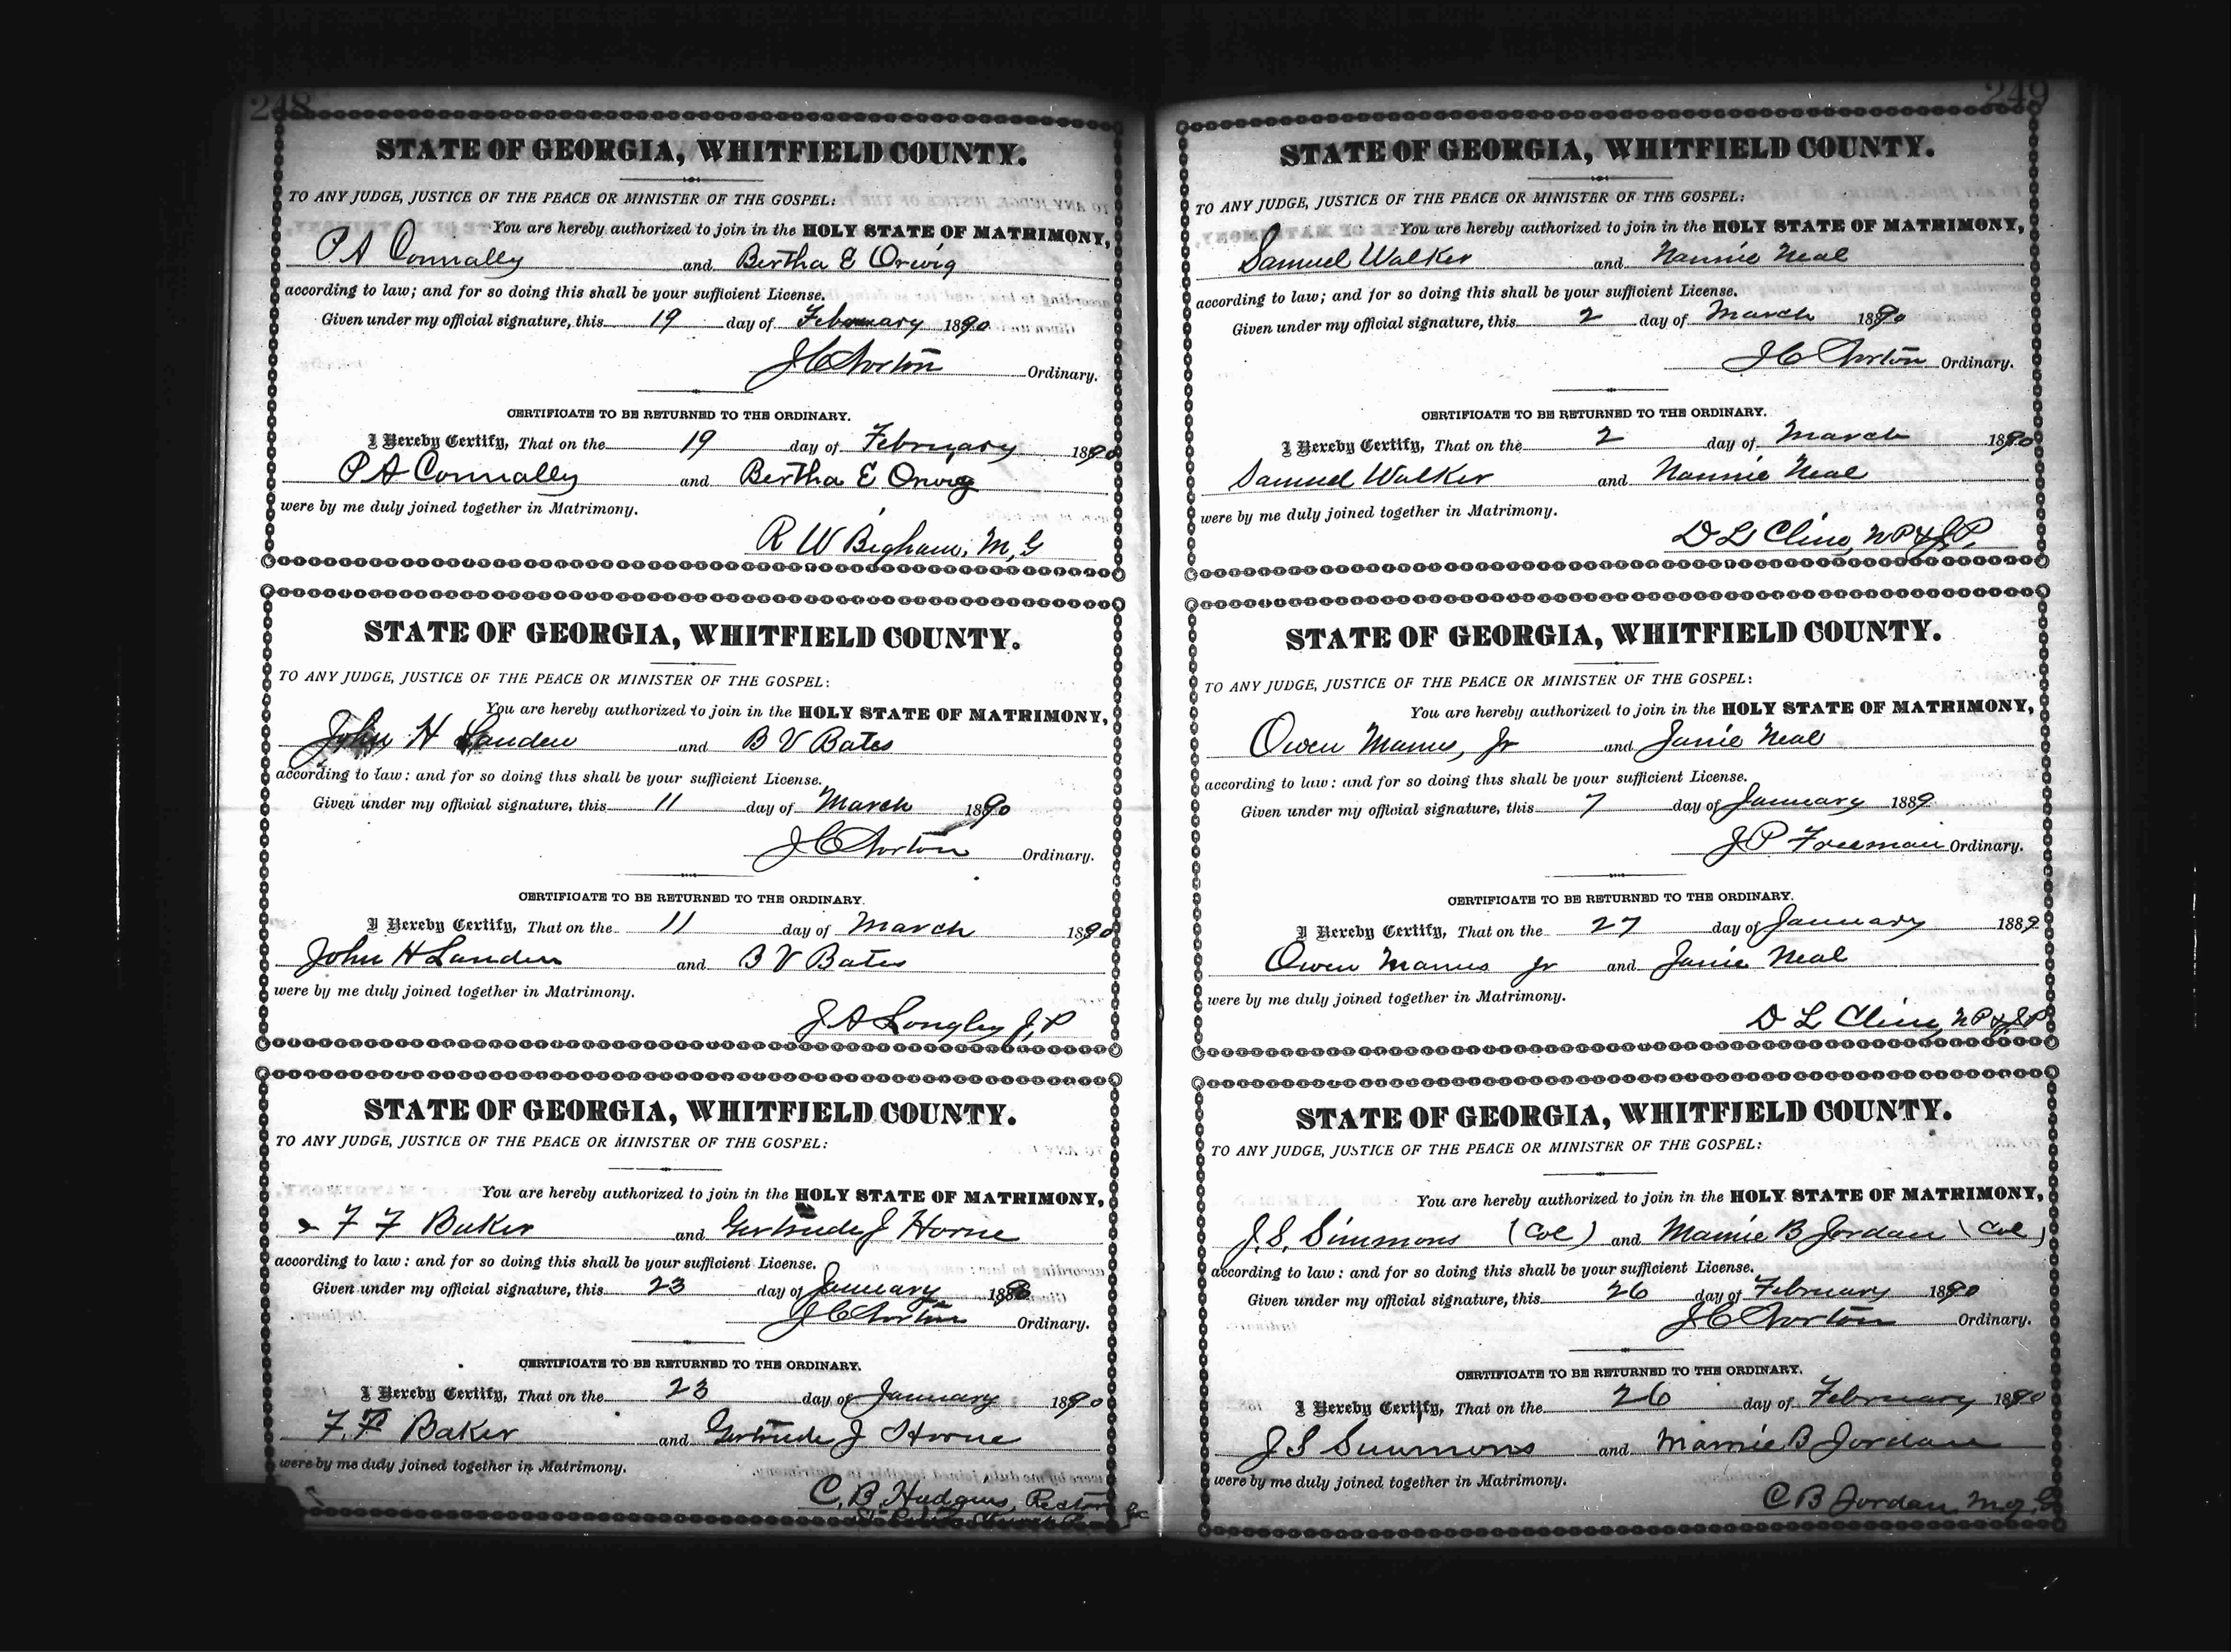 248
STATE OF GEORGIA, WHITFIELD COUNTY.
TO ANY JUDGE, JUSTICE OF THE PEACE OR MINISTER OF THE GOSPEL:
You are hereby authorized to join in the HOLY STATE OF MATRIMONY,
P A Connally and Bertha E Orwig
according to law; and for so doing this shall be your sufficient License.
Given under my official signature, this 19 day of February 1890
J C Norton Ordinary.
CERTIFICATE TO BE RETURNED TO THE ORDINARY.
I Hereby Certify, That on the 19 day of February 1890
P A Connally and Bertha E Orwig
were by me duly joined together in Matrimony.
R W Bigham, M, G
STATE OF GEORGIA, WHITFIELD COUNTY.
TO ANY JUDGE, JUSTICE OF THE PEACE OR MINISTER OF THE GOSPEL:
You are hereby authorized to join in the HOLY STATE OF MATRIMONY,
John H Landen and B V Bates
according to law: and for so doing this shall be your sufficient License.
Given under my official signature, this 11 day of March 1890
J C Norton Ordinary.
CERTIFICATE TO BE RETURNED TO THE ORDINARY.
I Hereby Certify, That on the 11 day of March 1890
John H Landen and B V Bates
were by me duly joined together in Matrimony.
J A Longley J, P
STATE OF GEORGIA, WHITFIELD COUNTY.
TO ANY JUDGE, JUSTICE OF THE PEACE OR MINISTER OF THE GOSPEL:
You are hereby authorized to join in the HOLY STATE OF MATRIMONY,
F F Baker and Gertrude J Horne
according to law: and for so doing this shall be your sufficient License.
Given under my official signature, this 23 day of January 1890
J C Norton Ordinary.
CERTIFICATE TO BE RETURNED TO THE ORDINARY.
I Hereby Certify, That on the 23 day of January 1890
F. F Baker and Gertrude J Horne
were by me duly joined together in Matrimony.
C. B. Hudgins, Rector
249
STATE OF GEORGIA, WHITFIELD COUNTY.
TO ANY JUDGE, JUSTICE OF THE PEACE OR MINISTER OF THE GOSPEL:
You are hereby authorized to join in the HOLY STATE OF MATRIMONY,
Samuel Walker and Nannie Neal
according to law; and for so doing this shall be your sufficient License.
Given under my official signature, this 2 day of March 1890
J C Norton Ordinary.
CERTIFICATE TO BE RETURNED TO THE ORDINARY.
I Hereby Certify, That on the 2 day of March 1890
Samuel Walker and Nannie Neal
were by me duly joined together in Matrimony.
D L Cline, N P & J. P.
STATE OF GEORGIA, WHITFIELD COUNTY.
TO ANY JUDGE, JUSTICE OF THE PEACE OR MINISTER OF THE GOSPEL:
You are hereby authorized to join in the HOLY STATE OF MATRIMONY,
Owen Manus, Jr and Janie Neal
according to law: and for so doing this shall be your sufficient License.
Given under my official signature, this 7 day of January 1889
J P Freeman Ordinary.
CERTIFICATE TO BE RETURNED TO THE ORDINARY.
I Hereby Certify, That on the 27 day of January 1889
Owen Manus Jr and Janie Neal
were by me duly joined together in Matrimony.
D L Cline, N P & J P
STATE OF GEORGIA, WHITFIELD COUNTY.
TO ANY JUDGE, JUSTICE OF THE PEACE OR MINISTER OF THE GOSPEL:
You are hereby authorized to join in the HOLY STATE OF MATRIMONY,
J. S. Simmons (Col) and Mamie B Jordan (Col)
according to law: and for so doing this shall be your sufficient License.
Given under my official signature, this 26 day of February 1890
J C Norton Ordinary.
CERTIFICATE TO BE RETURNED TO THE ORDINARY.
I Hereby Certify, That on the 26 day of February 1890
J S Simmons and Mamie B Jordan
were by me duly joined together in Matrimony.
C B Jordan, M. G.